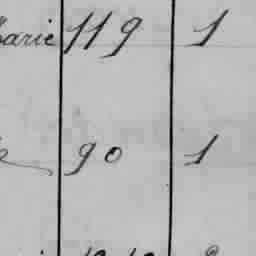 arie 119 1
90 1